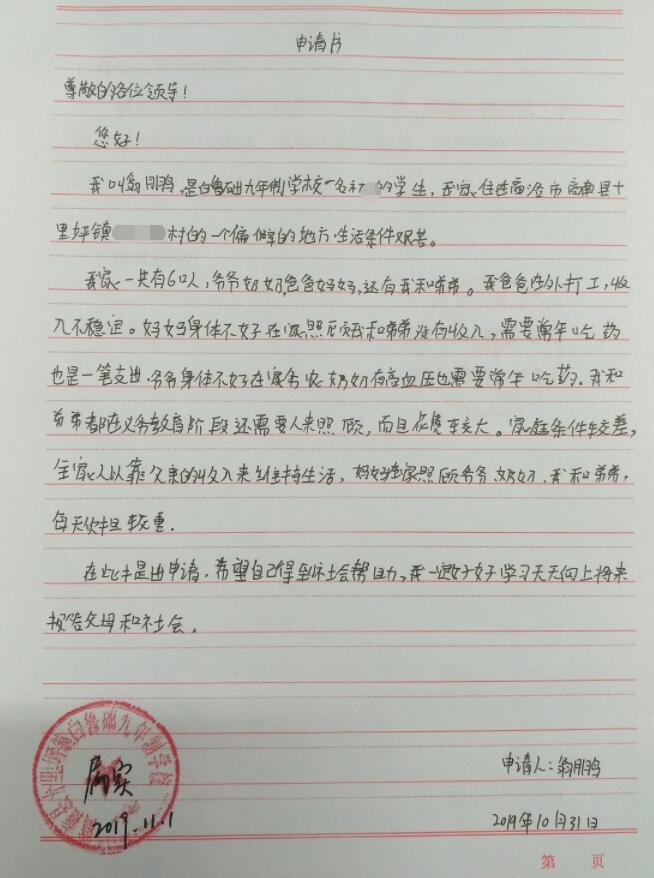 申请书
尊敬的各位领导！
您好！
我叫翁朋鸦，是白鲁础九年制学校一名初 的学生，我家住在商洛市商南县十
里坪镇 村的一个偏僻的地方，生活条件艰苦。
我家一共有6口人，爷爷奶奶，爸爸妈妈，还有我和弟弟。我爸爸在外打工，收
入不稳定。妈妈身体不好在家照顾我和弟弟没有收入，需要常年吃药
也是一笔支出，爷爷身体不好在家务农，奶奶有高血压也需要常年吃药。我和
弟弟都在义务教育阶段还需要人来照顾，而且花费较大。家庭条件较差，
全家人以靠父亲的收入来维持生活，妈妈在家照顾爷爷、奶奶、我和弟弟，
每天伙担较重.
在此提出申请，希望自己得到社会帮助，我一定好好学习天天向上将来
报答父母和社会。
申请人：翁朋
2019年10月31日
属实
2019.11.1
十里坪镇白鲁础九年制学校
第 页